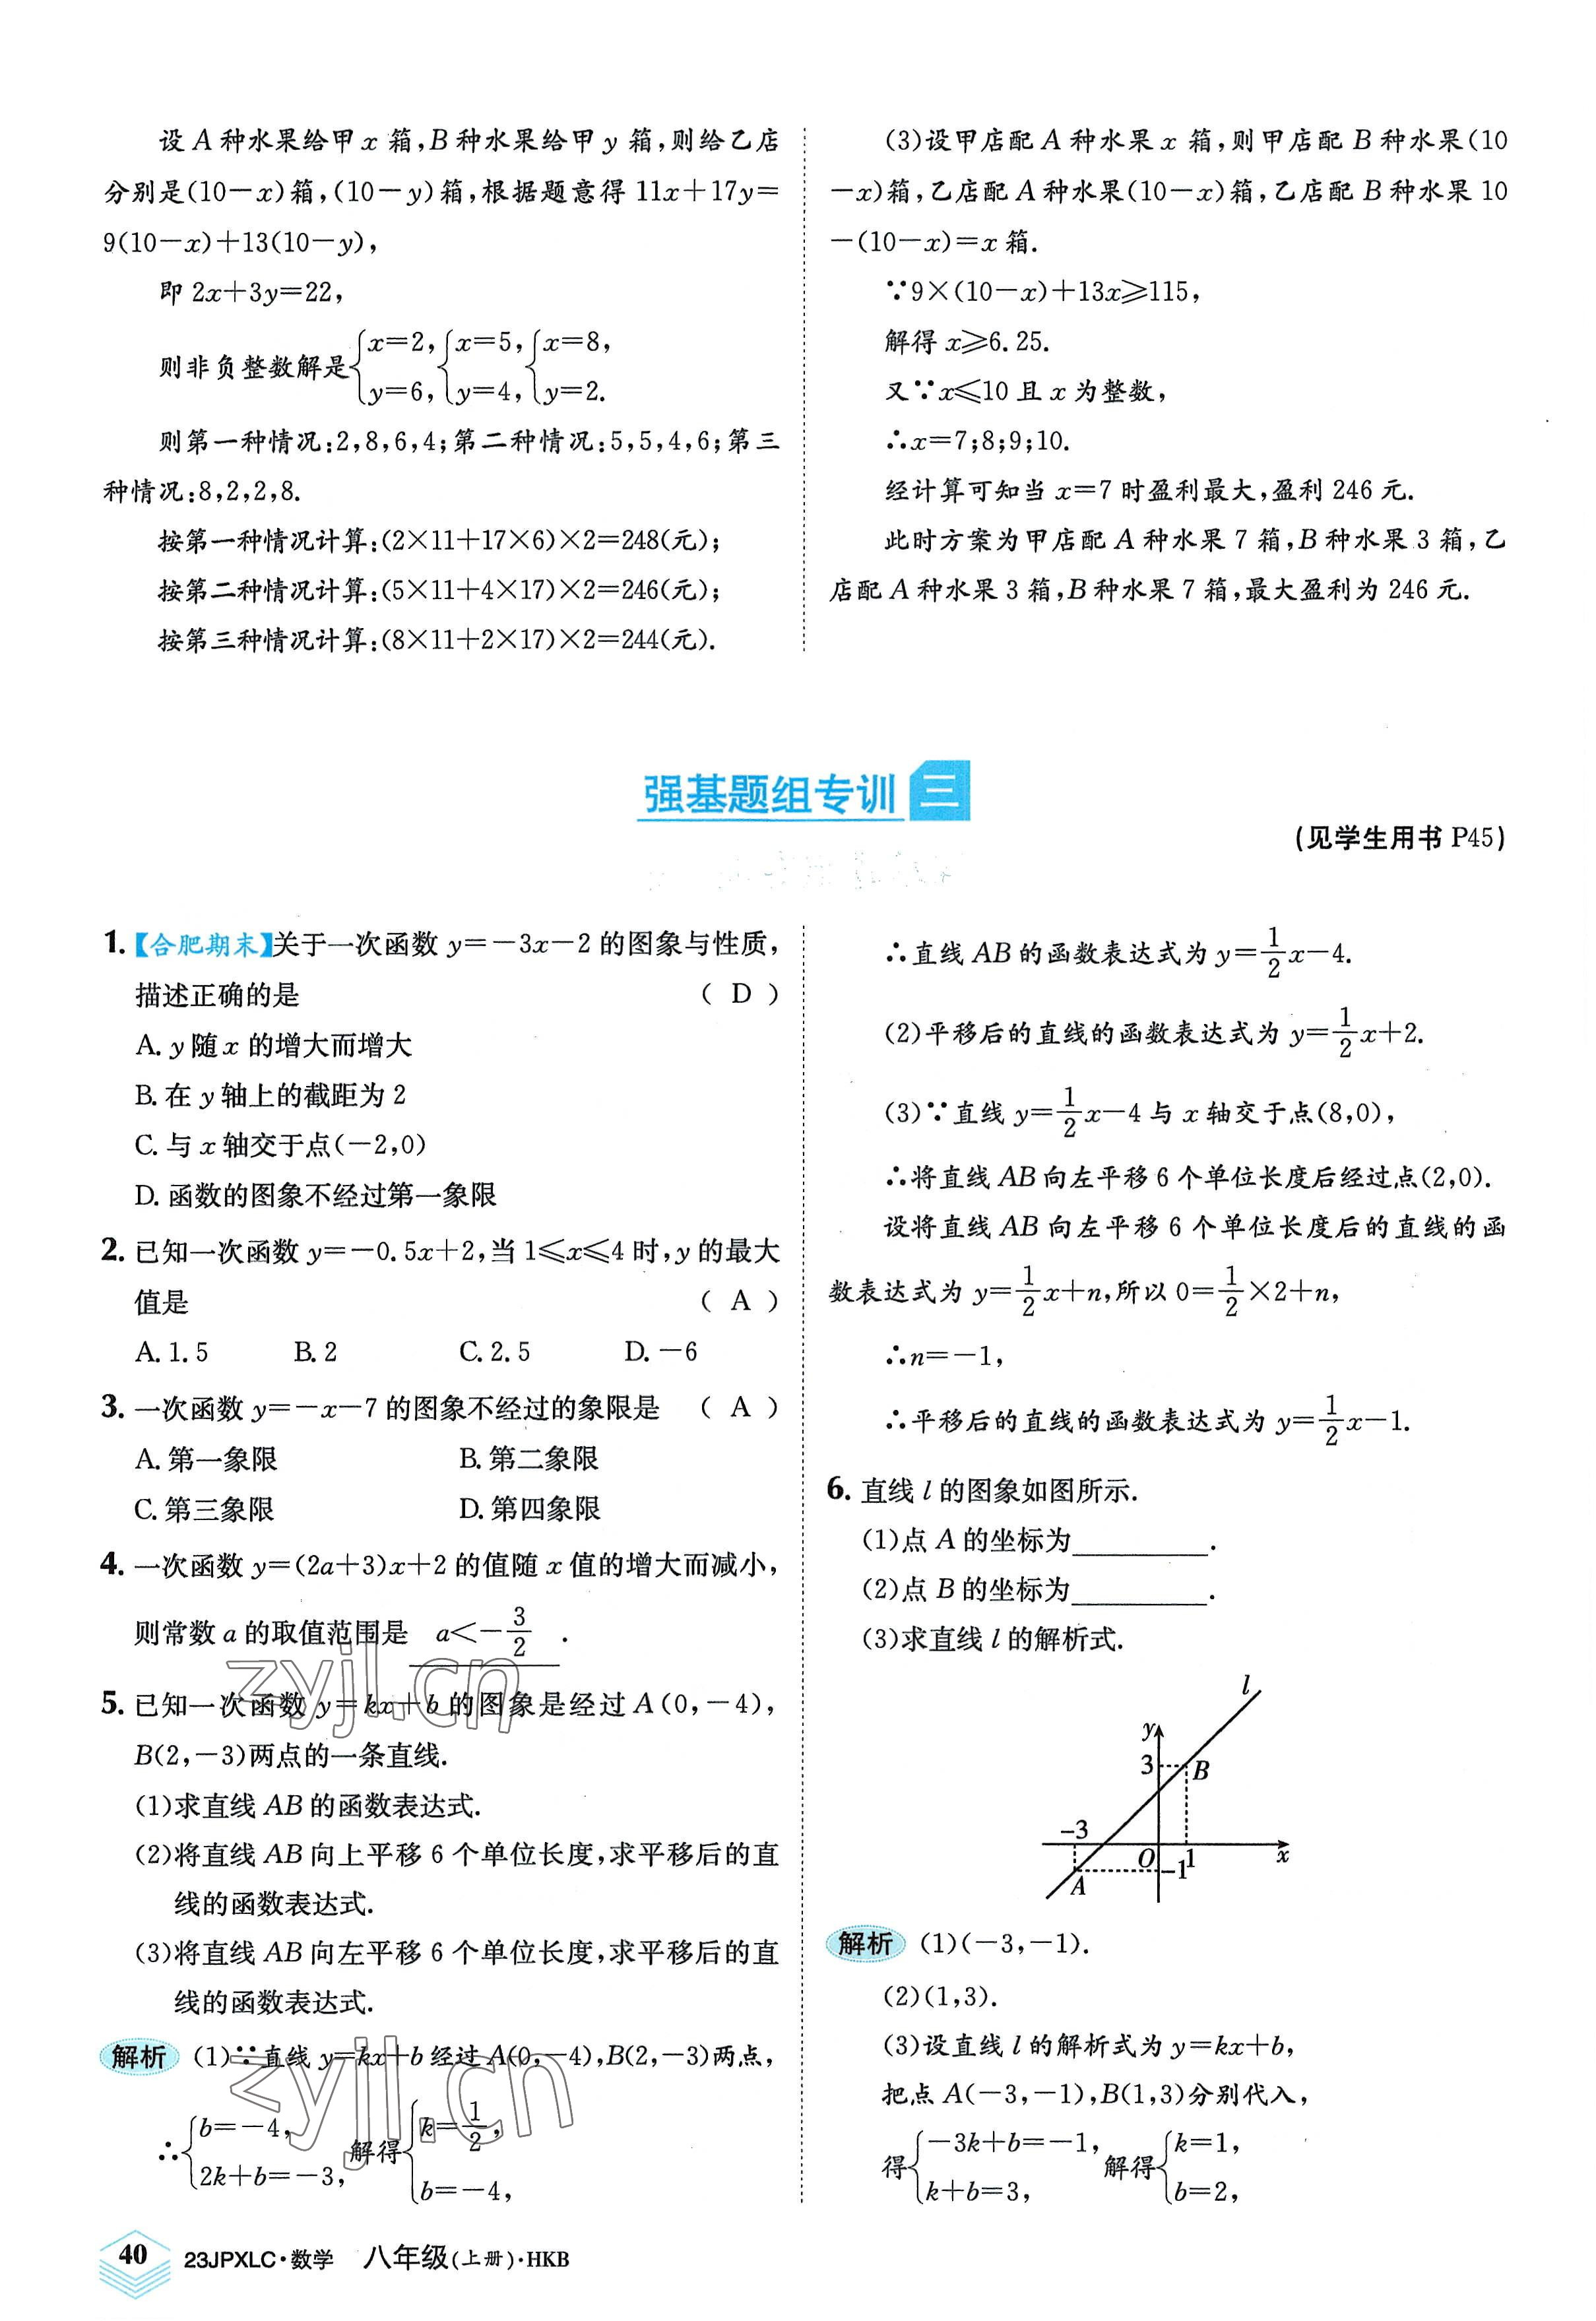 设 A 种水果给甲 x 箱,B 种水果给甲 y 箱,则给乙店
分别是(10－x)箱,(10－y)箱,根据题意得 11x＋17y＝
9(10－x)＋13(10－y),
即 2x＋3y＝22,
则非负整数解是{x＝2, y＝6, {x＝5, y＝4, {x＝8, y＝2.
则第一种情况:2,8,6,4;第二种情况:5,5,4,6;第三
种情况:8,2,2,8.
按第一种情况计算:(2×11＋17×6)×2＝248(元);
按第二种情况计算:(5×11＋4×17)×2＝246(元);
按第三种情况计算:(8×11＋2×17)×2＝244(元).
(3)设甲店配 A 种水果 x 箱,则甲店配 B 种水果(10
－x)箱,乙店配 A 种水果(10－x)箱,乙店配 B 种水果 10
－(10－x)＝x 箱.
∵9×(10－x)＋13x⩾115,
解得 x⩾6.25.
又∵x⩽10 且 x 为整数,
∴x＝7;8;9;10.
经计算可知当 x＝7 时盈利最大,盈利 246 元.
此时方案为甲店配 A 种水果 7 箱,B 种水果 3 箱,乙
店配 A 种水果 3 箱,B 种水果 7 箱,最大盈利为 246 元.
强基题组专训 三
(见学生用书 P45)
1.【合肥期末】关于一次函数 y＝－3x－2 的图象与性质,
描述正确的是 ( D )
A. y 随 x 的增大而增大
B. 在 y 轴上的截距为 2
C. 与 x 轴交于点(－2,0)
D. 函数的图象不经过第一象限
2. 已知一次函数 y＝－0.5x＋2,当 1⩽x⩽4 时,y 的最大
值是 ( A )
A. 1.5 B. 2 C. 2.5 D. －6
3. 一次函数 y＝－x－7 的图象不经过的象限是 ( A )
A. 第一象限 B. 第二象限
C. 第三象限 D. 第四象限
4. 一次函数 y＝(2a＋3)x＋2 的值随 x 值的增大而减小,
则常数 a 的取值范围是 a＜－3/2 .
5. 已知一次函数 y＝kx＋b 的图象是经过 A(0,－4),
B(2,－3)两点的一条直线.
(1)求直线 AB 的函数表达式.
(2)将直线 AB 向上平移 6 个单位长度,求平移后的直
线的函数表达式.
(3)将直线 AB 向左平移 6 个单位长度,求平移后的直
线的函数表达式.
解析 (1)∵直线 y＝kx＋b 经过 A(0,－4),B(2,－3)两点,
∴{b＝－4, 2k＋b＝－3, 解得{k＝1/2, b＝－4,
∴直线 AB 的函数表达式为 y＝1/2x－4.
(2)平移后的直线的函数表达式为 y＝1/2x＋2.
(3)∵直线 y＝1/2x－4 与 x 轴交于点(8,0),
∴将直线 AB 向左平移 6 个单位长度后经过点(2,0).
设将直线 AB 向左平移 6 个单位长度后的直线的函
数表达式为 y＝1/2x＋n,所以 0＝1/2×2＋n,
∴n＝－1,
∴平移后的直线的函数表达式为 y＝1/2x－1.
6. 直线 l 的图象如图所示.
(1)点 A 的坐标为__________.
(2)点 B 的坐标为__________.
(3)求直线 l 的解析式.
l
y
3
B
－3
O
1
x
－1
A
解析 (1)(－3,－1).
(2)(1,3).
(3)设直线 l 的解析式为 y＝kx＋b,
把点 A(－3,－1),B(1,3)分别代入,
得{－3k＋b＝－1, k＋b＝3, 解得{k＝1, b＝2,
zyjl.cn
zyjl.cn
40 23JPXLC·数学 八年级(上册)·HKB